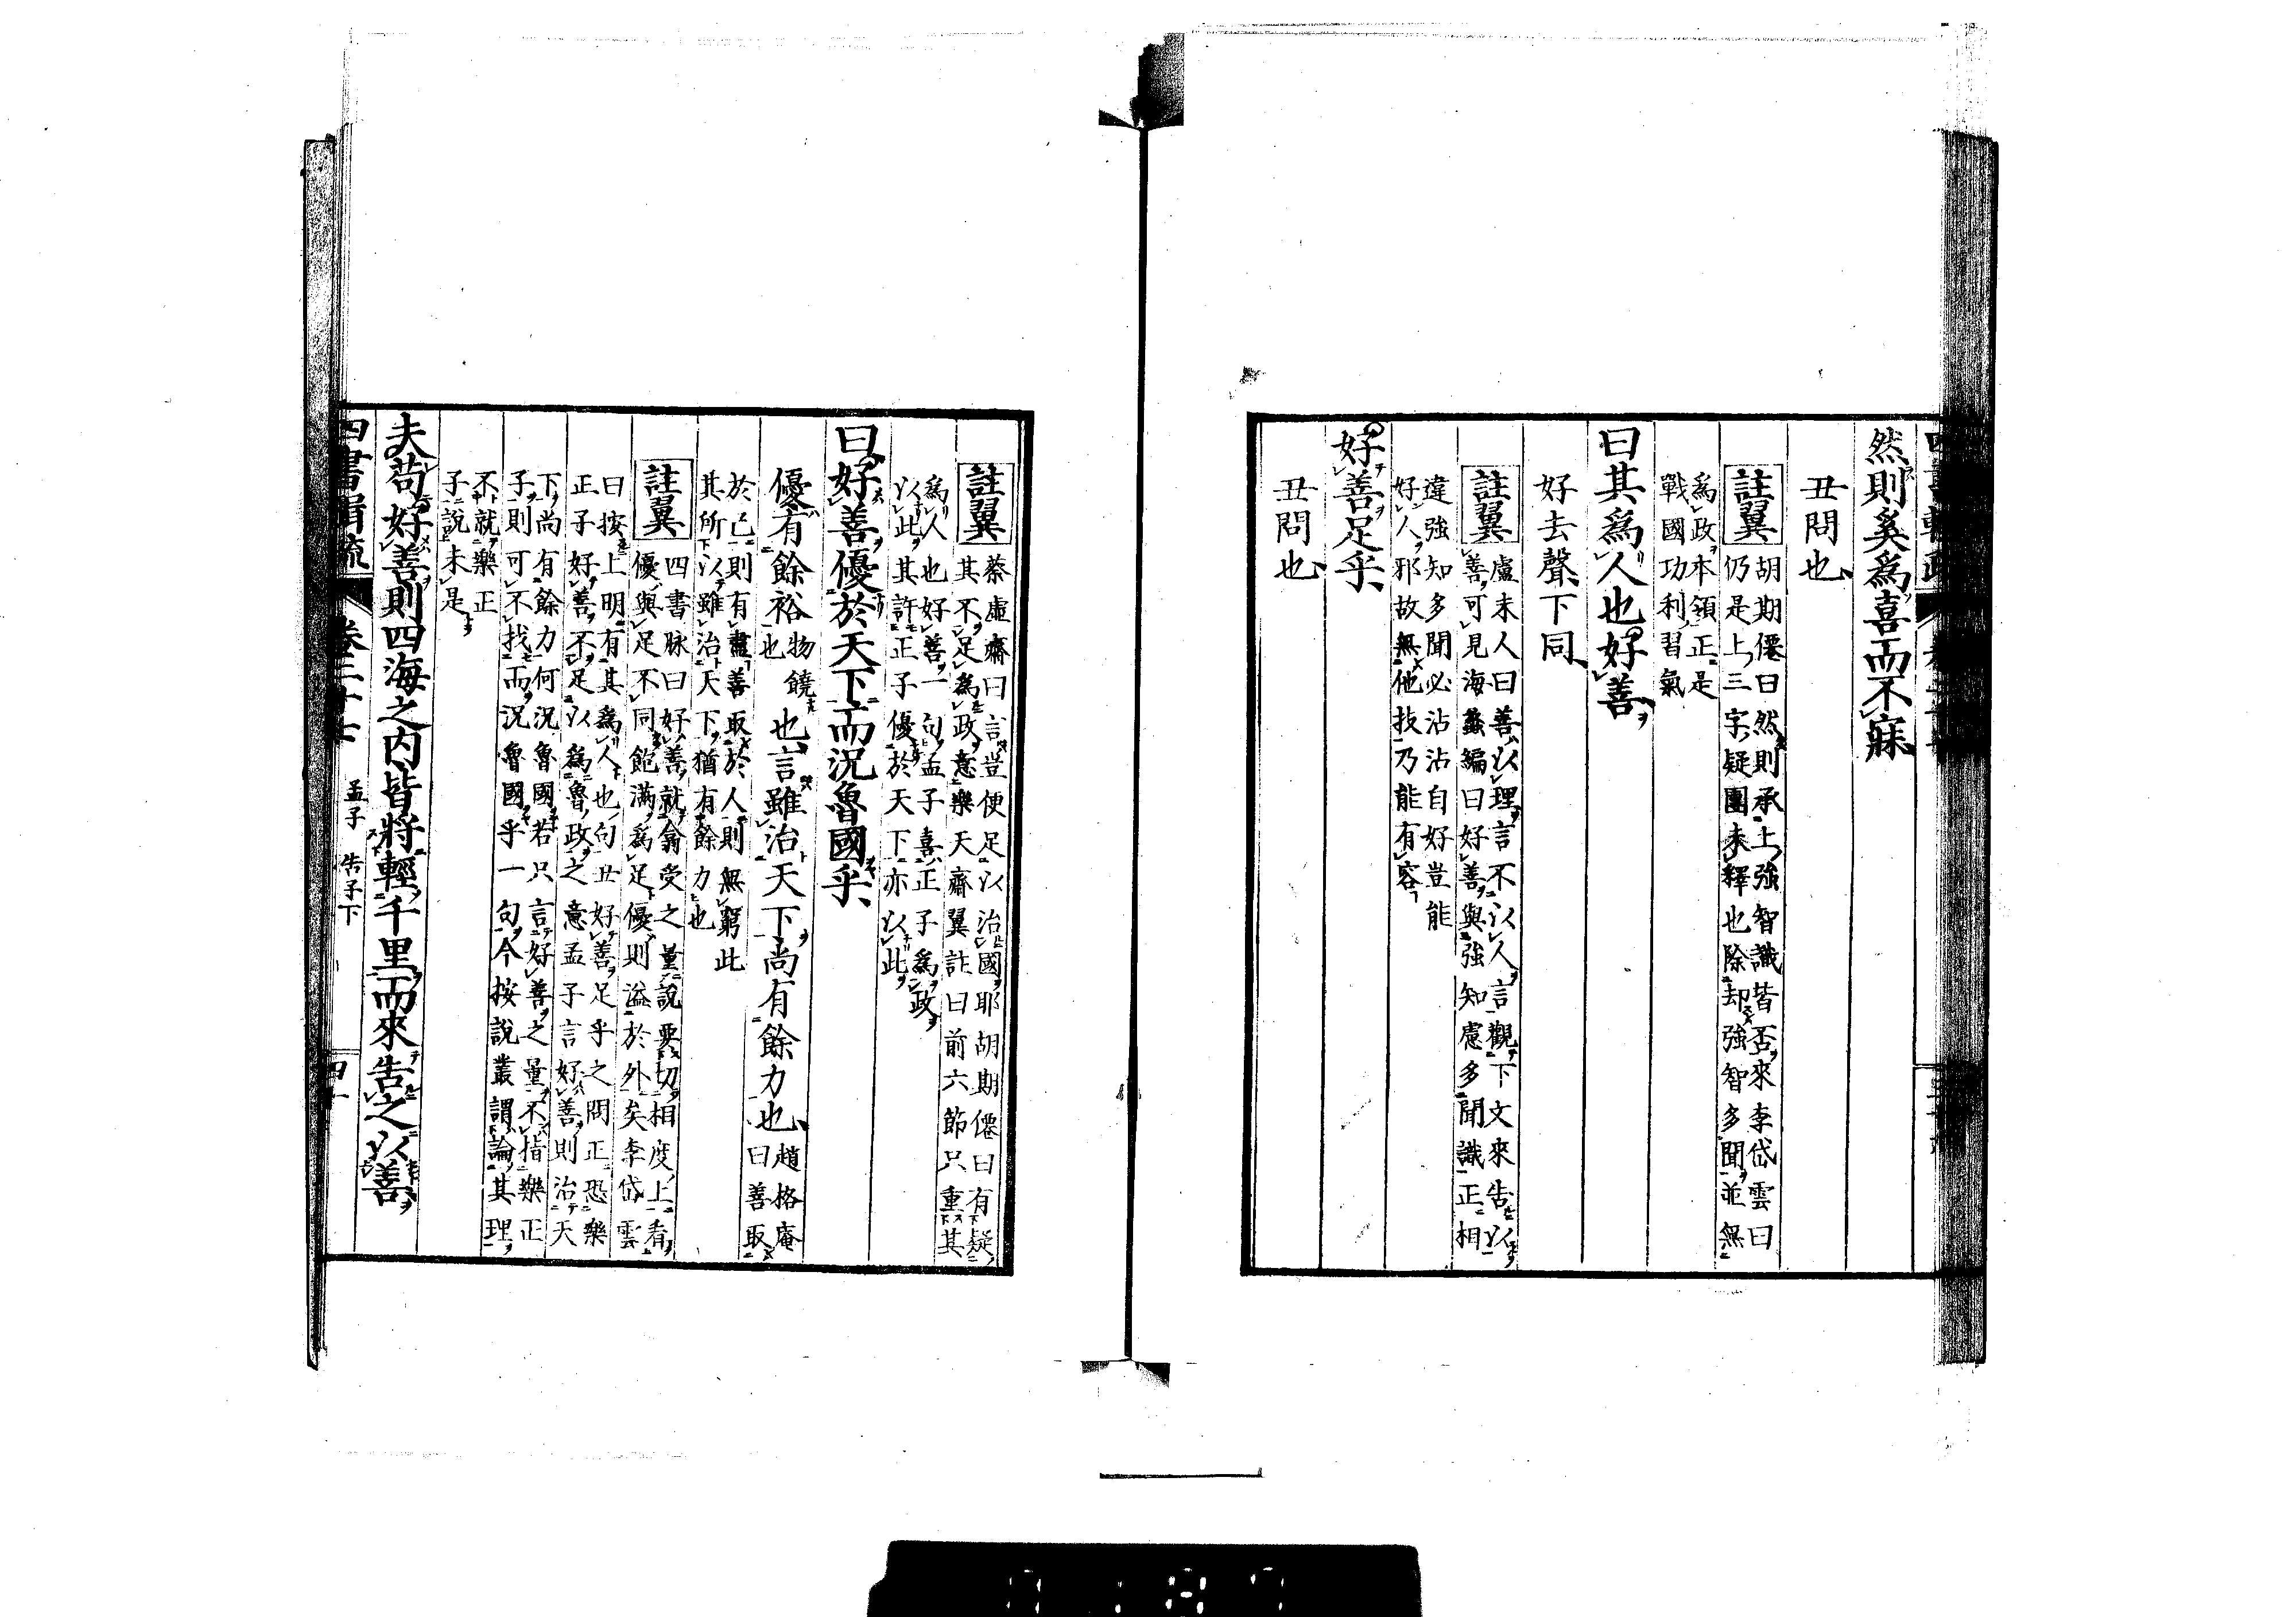 然則奚為喜而不寐
丑問也
註翼
胡期僊曰然則承上強智識皆否來李岱雲曰
仍是上三字疑團未釋也除却強智多聞並無
為政本領正是
戰國功利習氣
曰其為人也好善
好去聲下同
註翼
盧未人曰善以理言不以人言觀下文來告以
善可見海蠡編曰好善與強知慮多聞識正相
違強知多聞必沾沾自好豈能
好人邪故無他技乃能有容
好善足乎
丑問也
註翼
蔡虛齋曰言豈便足以治國耶胡期僊曰有疑
其不足為政意樂天齋翼註曰前六節只重其
為人也好善一句孟子喜正子為政
以此其許正子優於天下亦以此
曰好善優於天下而況魯國乎
優有餘裕也言雖治天下尚有餘力也
物饒
也
趙格庵
曰善取
於己則有盡善取於人則無窮此
其所以雖治天下猶有餘力也
註翼
四書脉曰好善就翕受之量說要切相度上看
優與足不同飽滿為足優則溢於外矣李岱雲
曰按上明有其為人也句丑好善足乎之問正恐樂
正子好善不足以為魯政之意孟子言好善則治天
下尚有餘力何況魯國若只言好善之量不指樂正
子則可不找而況魯國乎一句今按說叢謂論其理
不就樂正
子說未是
夫苟好善則四海之內皆將輕千里而來告之以善
四書輯疏
卷二十七
孟子 告子下